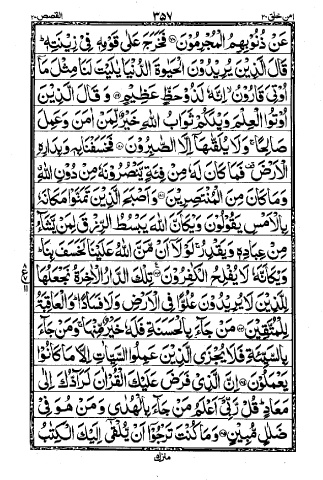 امن خلق ٢٠ ٣٥٧ القصص ٢٨
عَنْ ذُنُوْبِهِمُ الْمُجْرِمُوْنَ فَخَرَجَ عَلٰى قَوْمِهٖ فِيْ زِيْنَتِهٖ
قَالَ الَّذِيْنَ يُرِيْدُوْنَ الْحَيٰوةَ الدُّنْيَا يٰلَيْتَ لَنَا مِثْلَ مَآ
اُوْتِيَ قَارُوْنُ اِنَّهٗ لَذُوْ حَظٍّ عَظِيْمٍ وَقَالَ الَّذِيْنَ
اُوْتُوا الْعِلْمَ وَيْلَكُمْ ثَوَابُ اللّٰهِ خَيْرٌ لِّمَنْ اٰمَنَ وَعَمِلَ
صَالِحًا وَلَا يُلَقّٰىهَآ اِلَّا الصّٰبِرُوْنَ فَخَسَفْنَا بِهٖ وَبِدَارِهِ
الْاَرْضَ فَمَا كَانَ لَهٗ مِنْ فِئَةٍ يَّنْصُرُوْنَهٗ مِنْ دُوْنِ اللّٰهِ
وَمَا كَانَ مِنَ الْمُنْتَصِرِيْنَ وَاَصْبَحَ الَّذِيْنَ تَمَنَّوْا مَكَانَهٗ
بِالْاَمْسِ يَقُوْلُوْنَ وَيْكَاَنَّ اللّٰهَ يَبْسُطُ الرِّزْقَ لِمَنْ يَّشَآءُ
مِنْ عِبَادِهٖ وَيَقْدِرُ لَوْلَآ اَنْ مَّنَّ اللّٰهُ عَلَيْنَا لَخَسَفَ بِنَا
وَيْكَاَنَّهٗ لَا يُفْلِحُ الْكٰفِرُوْنَ تِلْكَ الدَّارُ الْاٰخِرَةُ نَجْعَلُهَا
لِلَّذِيْنَ لَا يُرِيْدُوْنَ عُلُوًّا فِي الْاَرْضِ وَلَا فَسَادًا وَالْعَاقِبَةُ
لِلْمُتَّقِيْنَ مَنْ جَآءَ بِالْحَسَنَةِ فَلَهٗ خَيْرٌ مِّنْهَا وَمَنْ جَآءَ
بِالسَّيِّئَةِ فَلَا يُجْزَى الَّذِيْنَ عَمِلُوا السَّيِّاٰتِ اِلَّا مَا كَانُوْا
يَعْمَلُوْنَ اِنَّ الَّذِيْ فَرَضَ عَلَيْكَ الْقُرْاٰنَ لَرَآدُّكَ اِلٰى
مَعَادٍ قُلْ رَّبِّيْٓ اَعْلَمُ مَنْ جَآءَ بِالْهُدٰى وَمَنْ هُوَ فِيْ
ضَلٰلٍ مُّبِيْنٍ وَمَا كُنْتَ تَرْجُوْٓا اَنْ يُّلْقٰٓى اِلَيْكَ الْكِتٰبُ